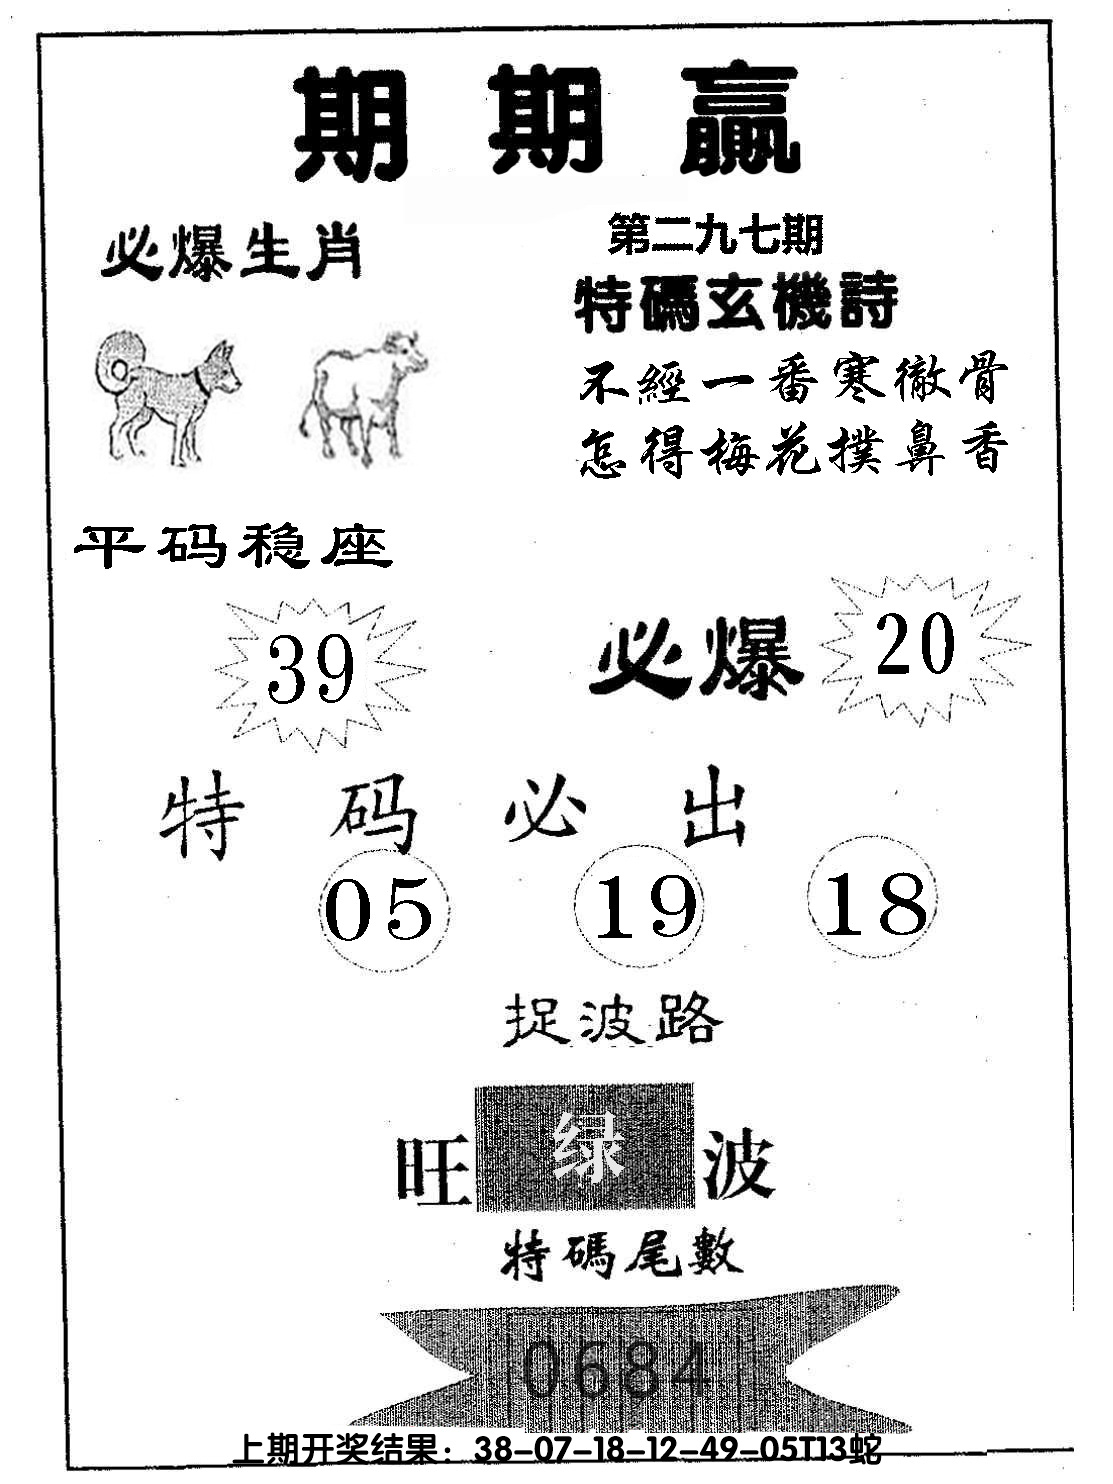 期期赢
必爆生肖
第二九七期
特碼玄機詩
不經一番寒徹骨
怎得梅花撲鼻香
平码稳座
39
必爆
20
特码必出
05 19 18
捉波路
旺绿波
特碼尾數
0684
上期开奖结果：38-07-18-12-49-05T13蛇